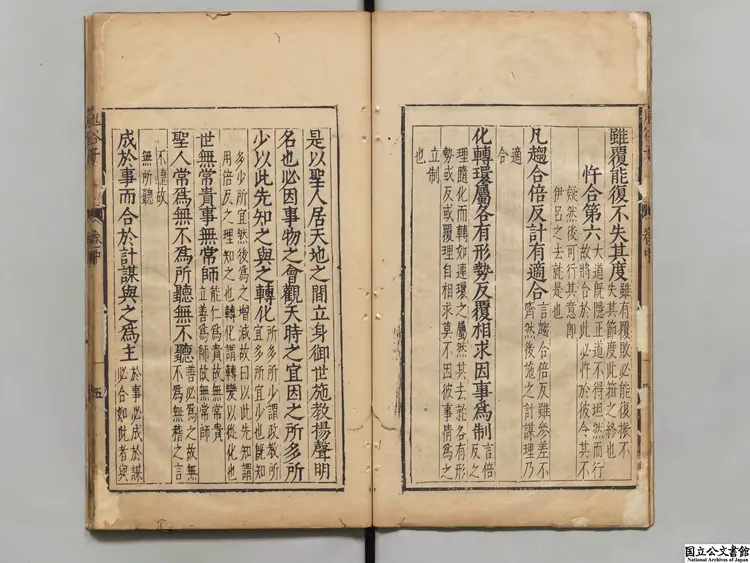 雖覆能復不失其度
雖有覆敗必能復振不
失其節度此箱之終也
忤合第六
大道既隱正道不得坦然而行
故將合於此必忤於彼令其不
疑然後可行其意即
伊呂之去就是也
凡趨合倍反計有適合
言趨合倍反雖參差不
齊然後施之計謀理乃
適
合
化轉環屬各有形勢反覆相求因事為制
言倍
反之
理隨化而轉如連環之屬然其去就各有形
勢或反或覆理自相求莫不因彼事情為之
立制
也
是以聖人居天地之間立身御世施教揚聲明
名也必因事物之會觀天時之宜因之所多所
少以此先知之與之轉化
所多所少謂政教所
宜多所宜少也既知
多少所宜然後為之增減故曰以此先知謂
用倍反之理知之也轉化謂轉變以從化也
世無常貴事無常師
能仁為貴故無常貴
立善為師故無常師
聖人常為無不為所聽無不聽
善必為之故無
不為無稽之言
不聽故
無所聽
成於事而合於計謀與之為主
於事必成於謀
必合如此者與
鬼谷子
卷中
五
国立公文書館
National Archives of Japan